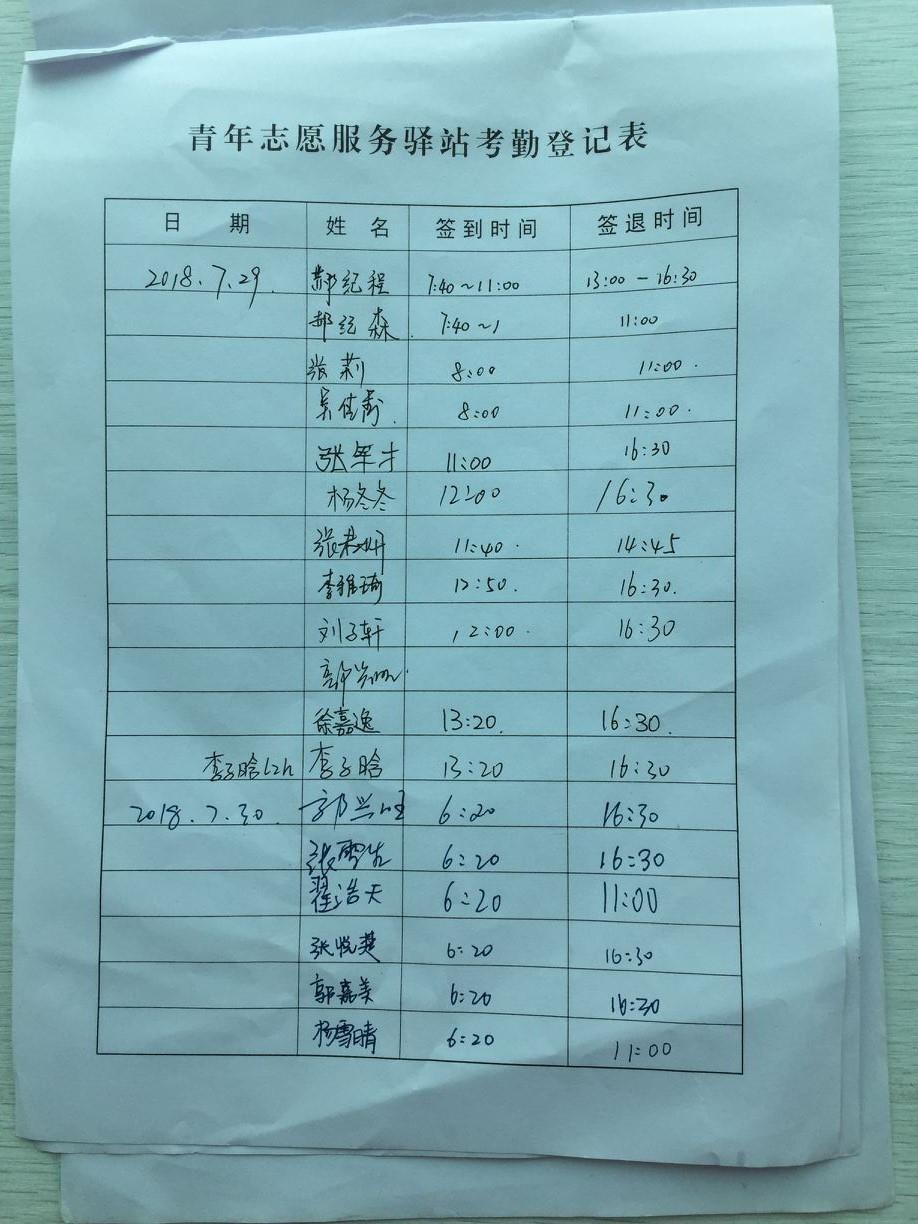 青年志愿服务驿站考勤登记表
日 期 姓 名 签到时间 签退时间
2018.7.29. 郝纪程 7:40~11:00 13:00-16:30
郝纪森. 7:40~1 11:00
张莉 8:00 11:00.
吴佳 8:00 11:00.
张军才 11:00 16:30
杨冬冬 12:00 16:30
张 妍 11:40. 14:45
李雅琦 12:50. 16:30.
刘子轩 12:00. 16:30
徐嘉逸 13:20. 16:30.
李子晗12h 李子晗 13:20 16:30
2018.7.30. 郭兴旺 6:20 16:30
张 6:20 16:30
翟浩天 6:20 11:00
张悦楚 6:20 16:30
郭嘉美 6:20 16:30
杨雪晴 6:20 11:00